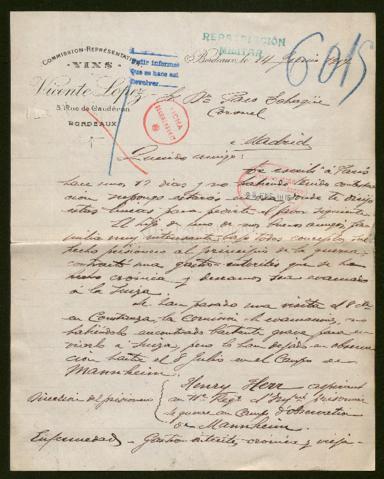 COMMISSION-REPRÉSENTATION
VINS
Vicente López
5, Rue de Caudéran
BORDEAUX
Pedir informes
Que se hace así
Devolver
REPATRIACIÓN
MILITAR
6015
Bordeaux, le 14
Sr Dn Paco Echagüe
Coronel
Madrid
Querido amigo:
Le escribí a París
hace unos 17 días y no habiendo tenido contesta-
ción supongo estarás en donde te dirijo
estas líneas para pedirte el favor siguiente
El hijo de uno de mis buenos amigos, fa-
milia muy interesante bajo todos conceptos, fue
hecho prisionero al principio de la guerra,
contrajo una gastro-enteritis que se ha
hecho crónica y deseamos sea evacuado
a la Suiza.
Le han pasado una visita el 8 de
en Constanza la Comisión de evacuación, no
habiéndolo encontrado bastante grave para en-
viarlo a Suiza, pero lo han dejado en observa-
ción hasta el 8 Julio en el Campo de
Mannheim.
Dirección del prisionero
Henry Herr
au Régt d'Infie prisonnier
de guerre au Camp d'observation
de Mannheim
Enfermedad - Gastro enteritis crónica y